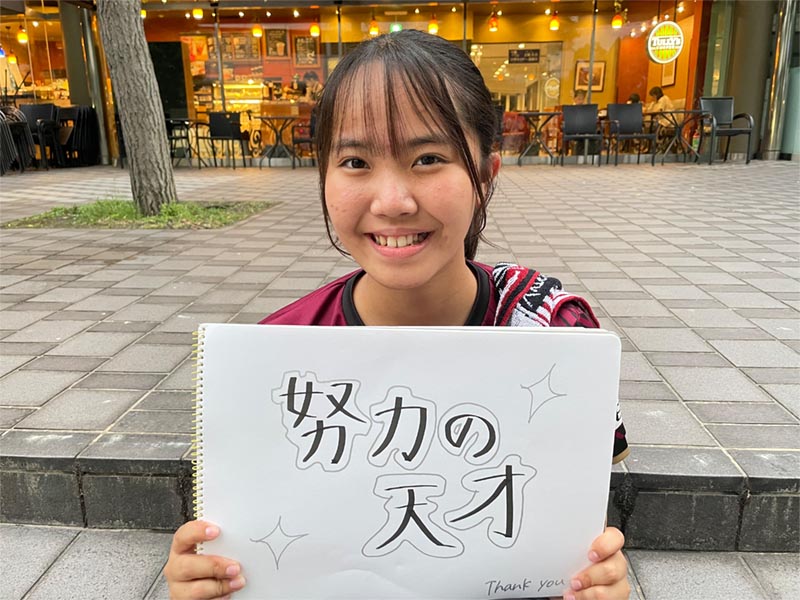 TULLY'S
努力の
天才
Thank you